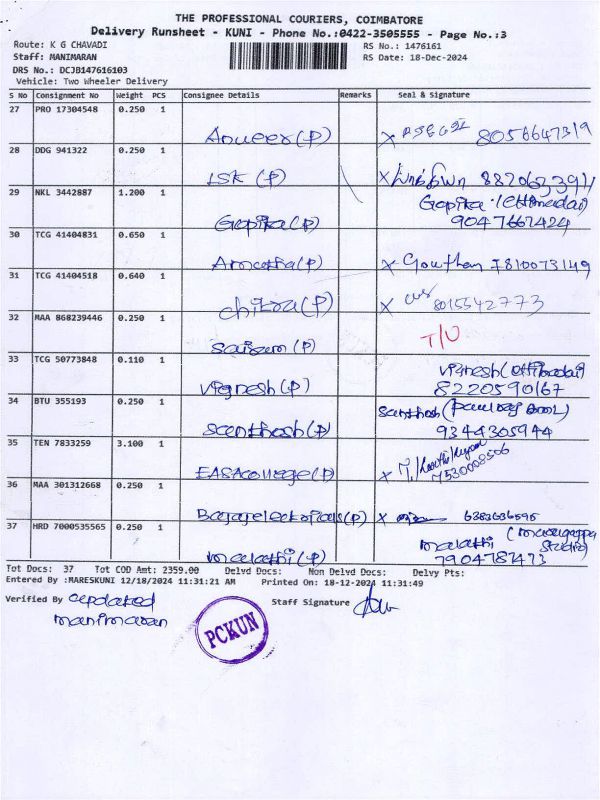 THE PROFESSIONAL COURIERS, COIMBATORE
Delivery Runsheet - KUNI - Phone No.:0422-3505555 - Page No.:3
Route: K G CHAVADI RS No.: 1476161
Staff: MANIMARAN RS Date: 18-Dec-2024
DRS No.: DCJB147616103
Vehicle: Two Wheeler Delivery
S No Consignment No Weight PCS Consignee Details Remarks Seal & Signature
27 PRO 17304548 0.250 1
Anueer(P) x 8056647319
28 DDG 941322 0.250 1
ISK (P) x
29 NKL 3442887 1.200 1 Gopika
Gopika(P) 9047667424
30 TCG 41404831 0.650 1
Amutha(P) x Gowtham 7810073149
31 TCG 41404518 0.640 1
chitra(P) x 8015542773
32 MAA 868239446 0.250 1 T/U
(P)
33 TCG 50773848 0.110 1 vignesh(ettimadai)
vignesh(P) 8220590167
34 BTU 355193 0.250 1 Santhosh
Santhosh(P) 9344305944
35 TEN 7833259 3.100 1
EASA College(P) x 7530008506
36 MAA 301312668 0.250 1
Bajaj electricals(P) x 6383636595
37 HRD 7000535565 0.250 1 malathi
malathi(P) 7904787473
Tot Docs: 37 Tot COD Amt: 2359.00 Delvd Docs: Non Delvd Docs: Delvy Pts:
Entered By :MARESKUNI 12/18/2024 11:31:21 AM Printed On: 18-12-2024 11:31:49
Verified By updated Staff Signature
manimaran
PCKUN